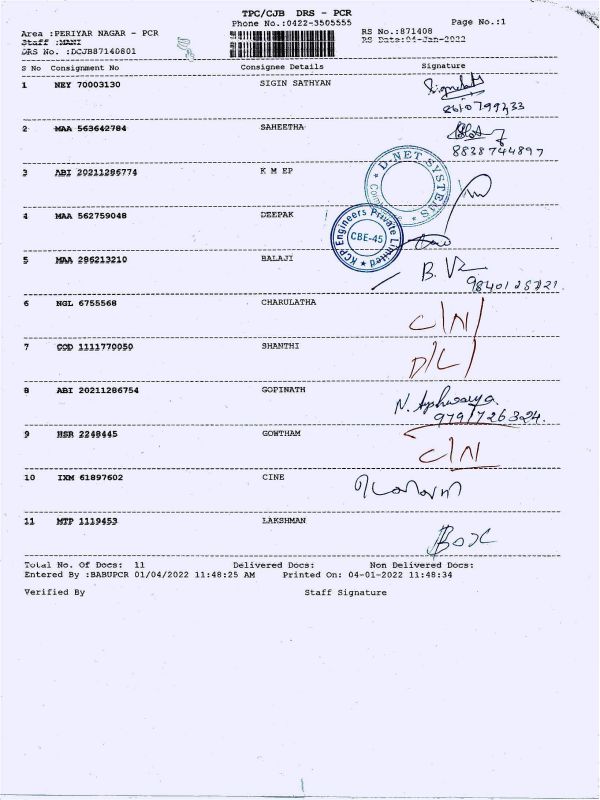 TPC/CJB DRS - PCR
Phone No.:0422-3505555
Page No.:1
Area :PERIYAR NAGAR - PCR
RS No.:871408
Staff :MANI
RS Date:04-Jan-2022
DRS No. :DCJB87140801
S No Consignment No Consignee Details Signature
1 NEY 70003130 SIGIN SATHYAN
2 MAA 563642784 SAHEETHA
8838744897
3 ABI 20211286774 K M EP
D-NET SYSTEMS
4 MAA 562759048 DEEPAK
KCP Engineers Private Limited
CBE-45
5 MAA 296213210 BALAJI
B. V
6 NGL 6755568 CHARULATHA
C/N/
7 COD 1111770050 SHANTHI
D/L/
8 ABI 20211286754 GOPINATH
9791726324.
9 HSR 2248445 GOWTHAM
C/N
10 IXM 61897602 CINE
11 MTP 1119453 LAKSHMAN
Box
Total No. Of Docs: 11 Delivered Docs: Non Delivered Docs:
Entered By :BABUPCR 01/04/2022 11:48:25 AM Printed On: 04-01-2022 11:48:34
Verified By Staff Signature